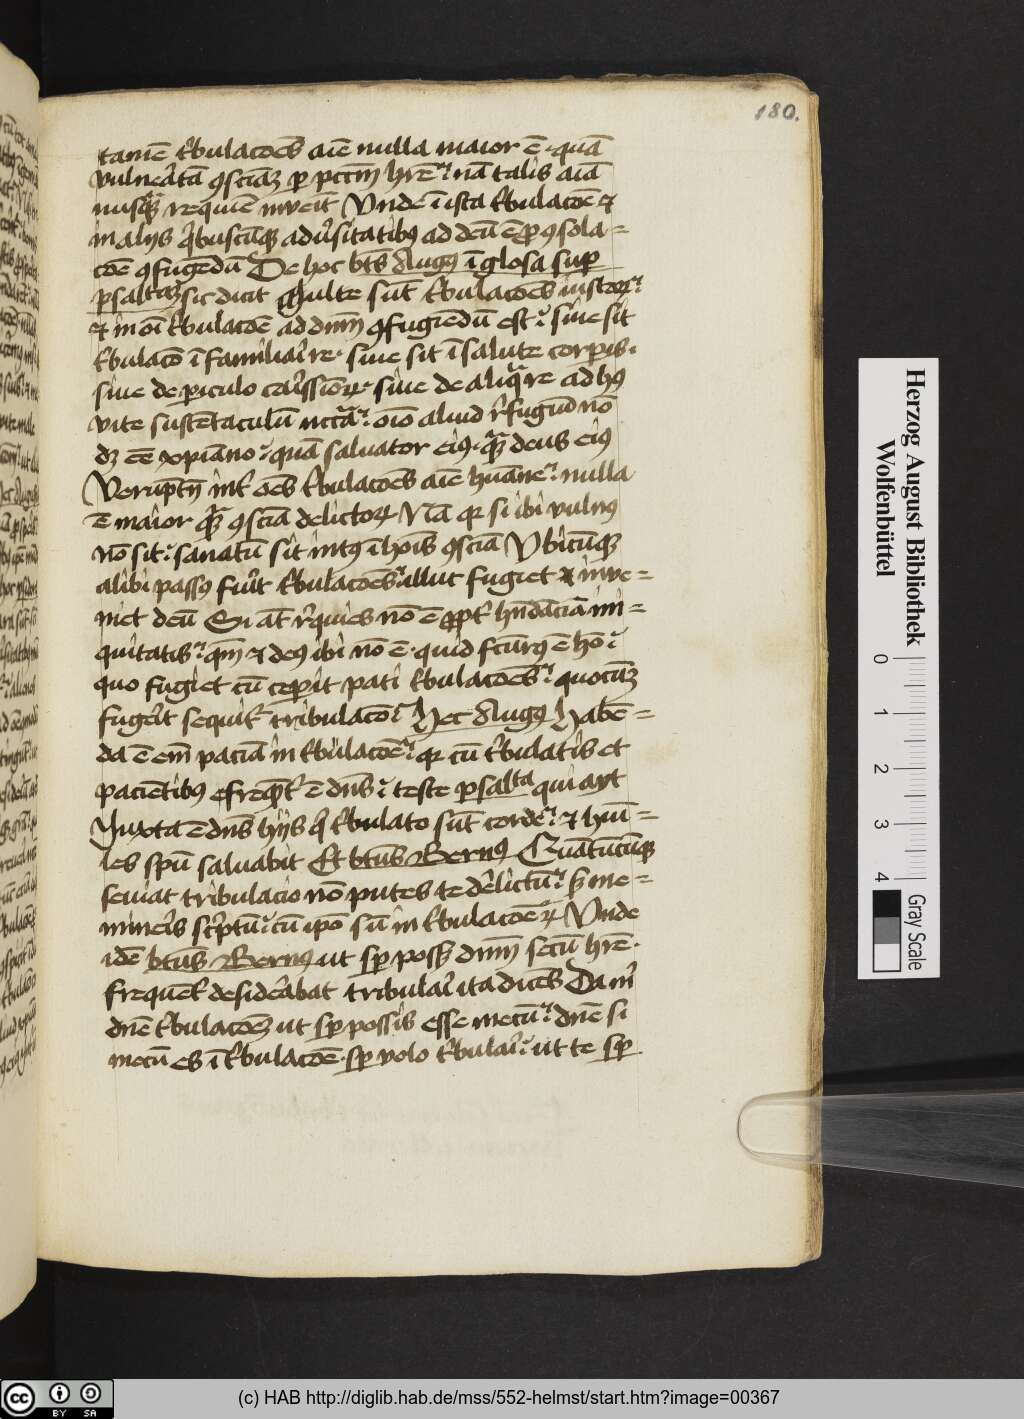 180.
tamē tͥbulacōēs aīe nulla maior ē · quā
vulnēatā ꝯsciāꝫ ꝑ pctm̄ hr̄e nā talis aīā
nusqͣꝫ requiē inveīt Vnde ī ista tͥbulacōe ⁊
in alijs qͥbuscūqꝫ adūsitatibꝰ ad deū ē ꝓ ꝯsola=
cōē ꝯfugēdū De hoc bt̄s Augꝰ ī glosa suꝑ
psaltāꝫ sic dicit Multe sūt tͥbulacōēs iustoꝝ
⁊ in oī tͥbulacōe ad dnm̄ ꝯfugiēdū est sive sit
tͥbulacō ī familiaī re · sive sit ī salute corꝑis ·
sive de ꝑiculo caīssīoꝝ · sive de aliqͣ re ad hꝰ
vite sustētaculū nccāͣ oīo aliud rͥfugiū nō
dꝫ eē xp̄iano quā salvator eiꝰ · qͣꝫ deus eiꝰ
Verūptn̄ int̄ oēs tͥbulacōēs aīe huāne nulla
ē maior qͣꝫ ꝯsciā delictoꝝ Nā qꝛ si ibi vulnꝰ
nō sit sanatū sit intꝰ ī hoīs ꝯsciā Vbicūqꝫ
alibi passꝰ fuīt tͥbulacōēs illuc fugiet ⁊ inve=
niet deū Si aūt rͥquies nō ē ꝓpt̄ hn̄dāciā ini=
quitatis qm̄ ⁊ deꝰ ibi nō ē · quid fcūrꝰ ē hō
quo fugiet cū ceperit pati tͥbulacōēs quocūꝫ
fugīt sequit̄ tribulacō Hec Augꝰ Habē=
da ē em̄ paciā in tͥbulacōe qꝛ cū tͥbulatis et
pacientibꝰ efreqͦt̄ ē dn̄s teste psalta qui ayt
Iuxta ē dn̄s hijs qͥ tͥbulato sūt corde ⁊ hūi=
les spū salvabit Et btūs Bernꝰ Quātūcūqꝫ
seviat tribulacio nō putes te dēlictū sꝫ me=
mineīs scͥptū cū ip̄o sū in tͥbulacōe ꝛc Vnde
idē btūs Bernꝰ ut sꝑ possꝫ dnm̄ secū hr̄e ·
frequēt̄ desideābat tribulaī ita dicēs Da mͥ
dn̄e tͥbulacōeꝫ ut sꝑ possis esse mecū dn̄e si
mecū es ī tͥbulacōe · sꝑ volo tͥbulaī ut te sꝑ
Herzog August Bibliothek
Wolfenbüttel
0 1 2 3 4
Gray Scale
cc BY SA
(c) HAB http://diglib.hab.de/mss/552-helmst/start.htm?image=00367